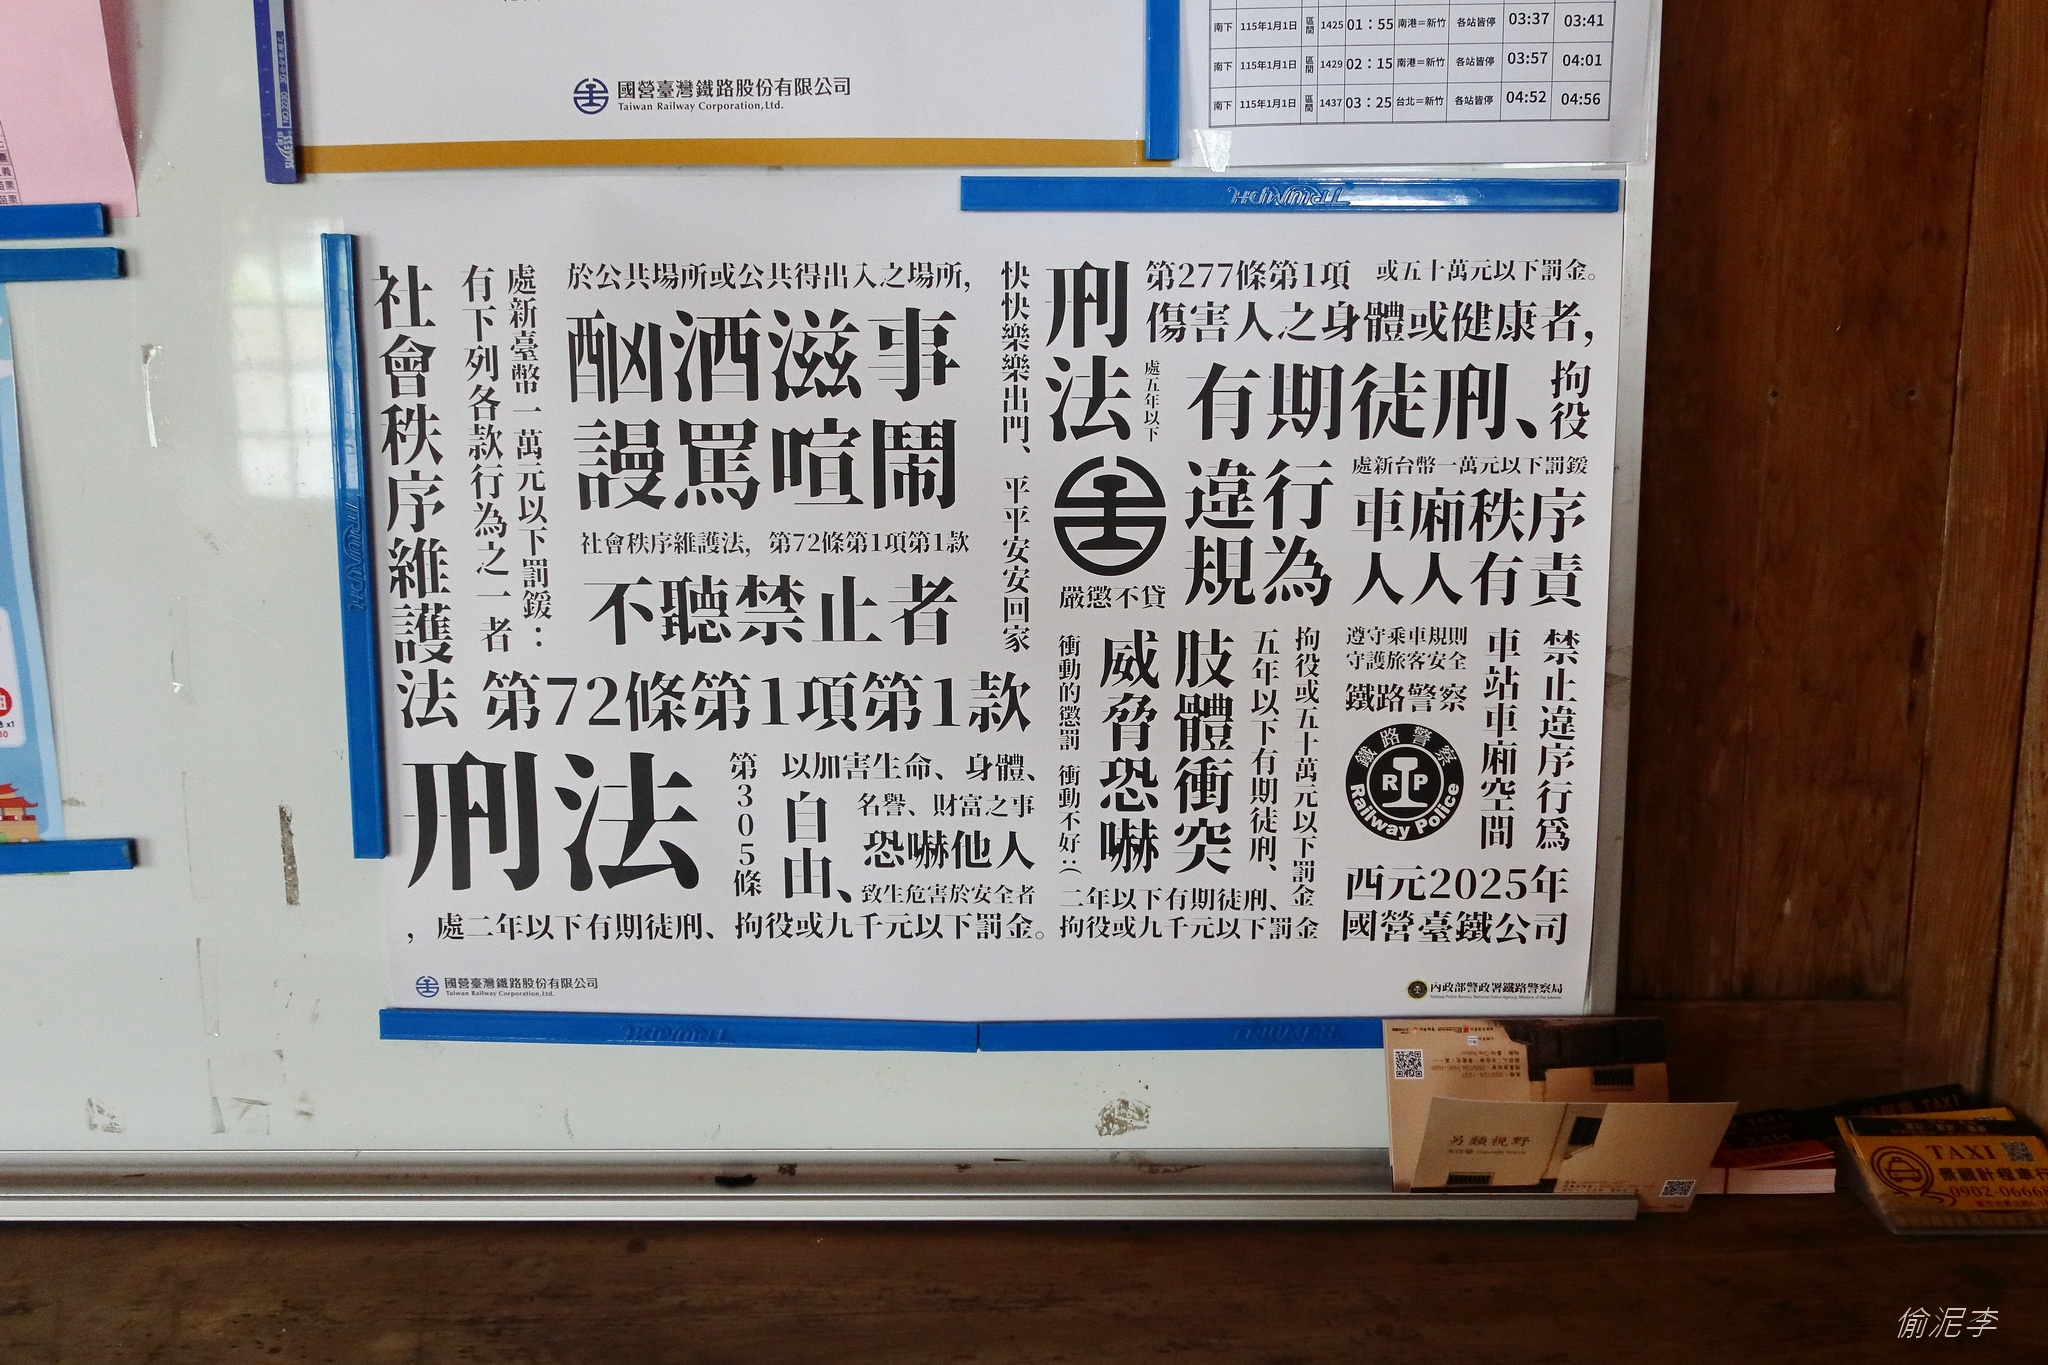 國營臺灣鐵路股份有限公司
Taiwan Railway Corporation,Ltd.
SUCCESS
南下 115年1月1日 區間 1425 01:55 南港=新竹 各站皆停 03:37 03:41
南下 115年1月1日 區間 1429 02:15 南港=新竹 各站皆停 03:57 04:01
南下 115年1月1日 區間 1437 03:25 台北=新竹 各站皆停 04:52 04:56
TRIUMPH
TRIUMPH
社會秩序維護法
有下列各款行為之一者
處新臺幣一萬元以下罰鍰：
於公共場所或公共得出入之場所,
酗酒滋事
謾罵喧鬧
社會秩序維護法, 第72條第1項第1款
不聽禁止者
第72條第1項第1款
快快樂樂出門、平平安安回家
刑法
第305條
以加害生命、身體、
自由、
名譽、財富之事
恐嚇他人
致生危害於安全者
，處二年以下有期徒刑、拘役或九千元以下罰金。
刑法
第277條第1項 或五十萬元以下罰金。
傷害人之身體或健康者,
處五年以下
有期徒刑、
拘役
嚴懲不貸
違行
規為
處新台幣一萬元以下罰鍰
車廂秩序
人人有責
衝動的懲罰 衝動不好:(
威脅恐嚇
肢體衝突
五年以下有期徒刑、
拘役或五十萬元以下罰金
二年以下有期徒刑、
拘役或九千元以下罰金
遵守乘車規則
守護旅客安全
鐵路警察
鐵路警察
RP
Railway Police
車站車廂空間
禁止違序行為
西元2025年
國營臺鐵公司
國營臺灣鐵路股份有限公司
Taiwan Railway Corporation,Ltd.
內政部警政署鐵路警察局
TRIUMPH
另類視野
TAXI
TAXI
計程車行
0902-0666
偷泥李